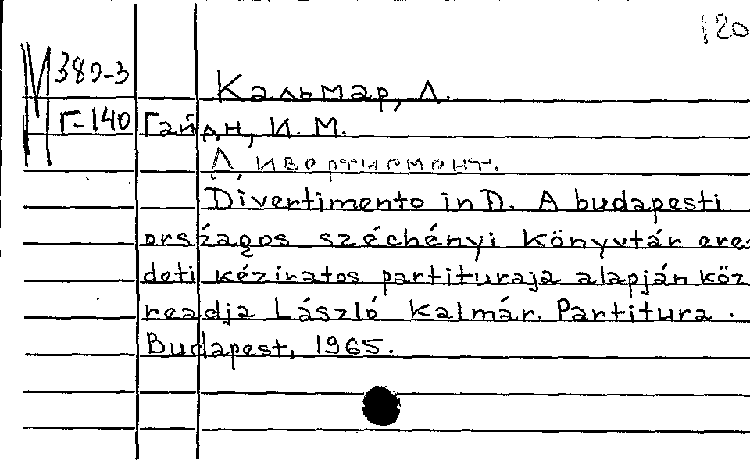 120
М 389-3
Кальмар, Л.
Г-140 Гайдн, И. М.
Дивертисмент.
Divertimento in D. A budapesti
országos széchényi könyvtár ere-
deti kéziratos partituraja alapján köz
readja László Kalmár. Partitura.
Budapest, 1965.